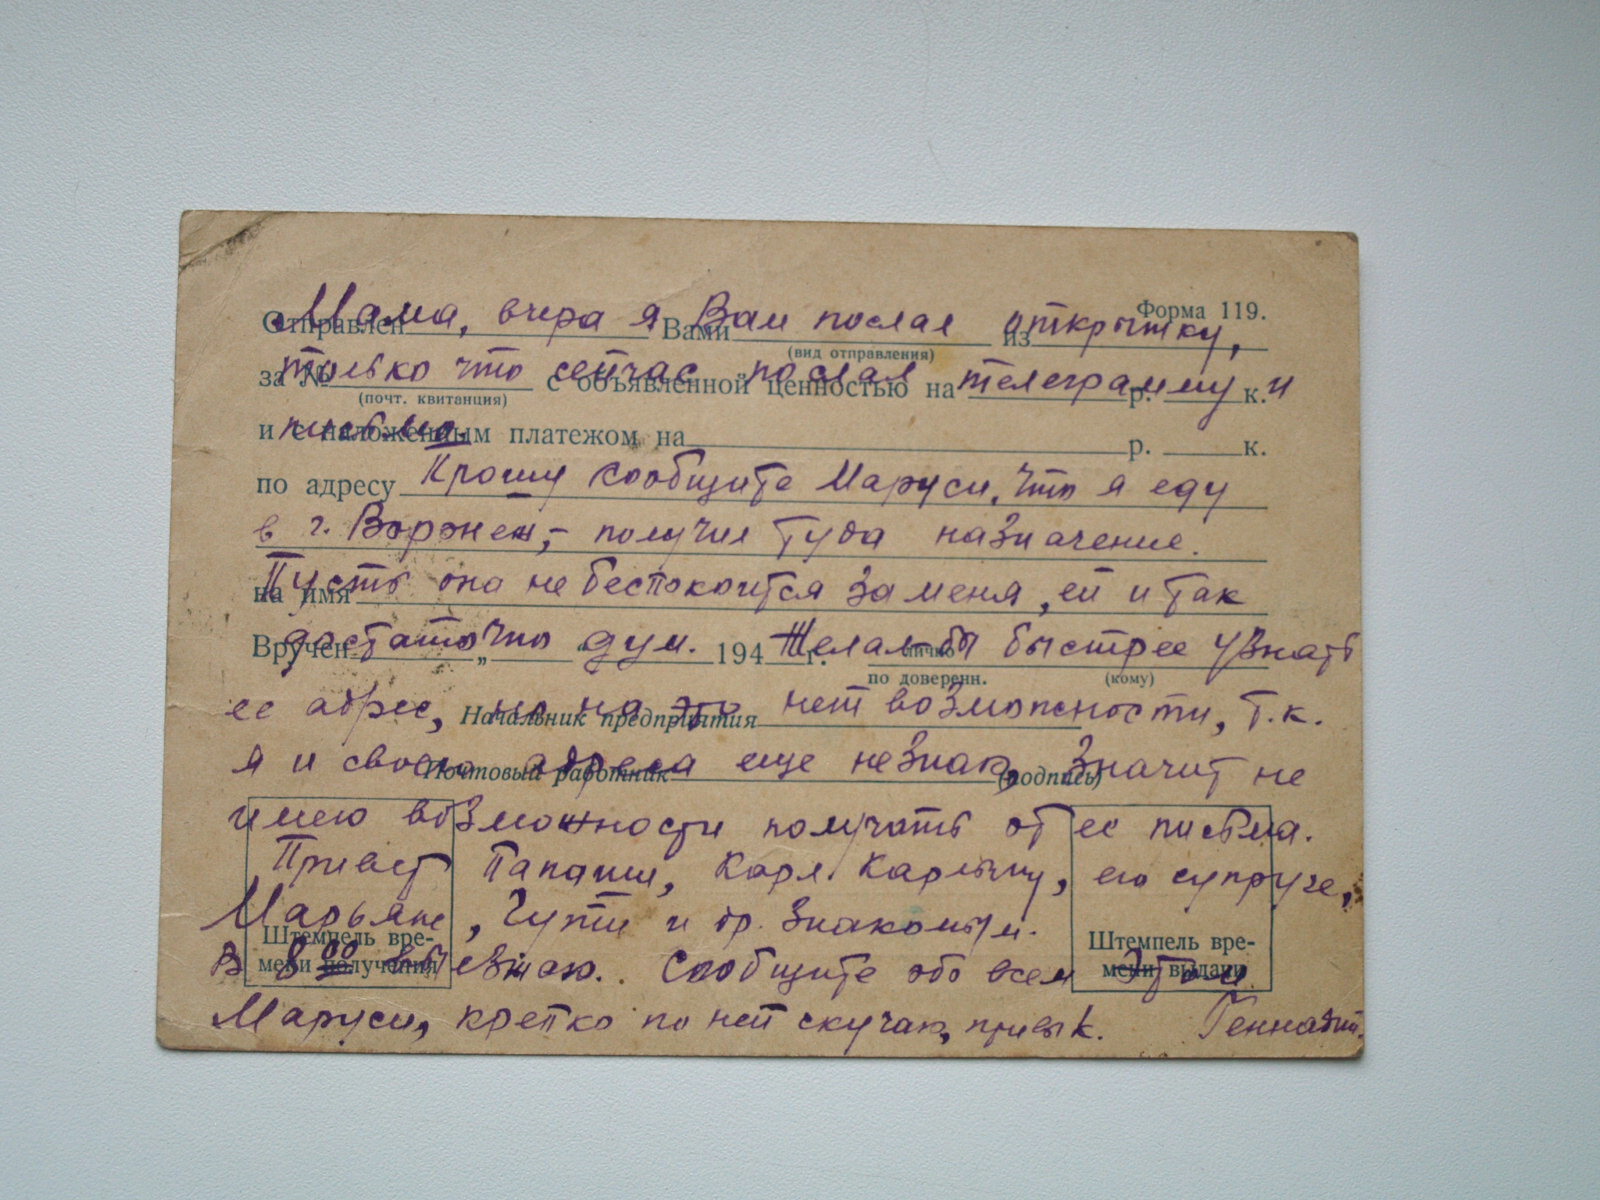 Мама, вчера я Вам послал открытку,
Форма 119.
Отправлен Вами из
(вид отправления)
только что сейчас послал телеграмму и
за № с объявленной ценностью на р. к.
(почт. квитанция)
письмо.
и с наложенным платежом на р. к.
Прошу сообщите Маруси, что я еду
по адресу
в г. Воронеж, - получил туда назначение.
Пусть она не беспокоится за меня, ей и так
на имя
достаточно дум. Желал бы быстрее узнать
Вручен „ “ 194 г. лично
по доверенн. (кому)
ее адрес, но на это нет возможности, т.к.
Начальник предприятия
я и своего адреса еще не знаю, значит не
Почтовый работник (подпись)
имею возможности получать от ее письма.
Привет Папаши, Карл Карлычу, его супруге,
Марьяне, и др. знакомым.
Штемпель вре- Штемпель вре-
В 8 00 выезжаю. Сообщите обо всем этом
мени получения мени выдачи
Маруси, крепко по ней скучаю, привык. Геннадий.